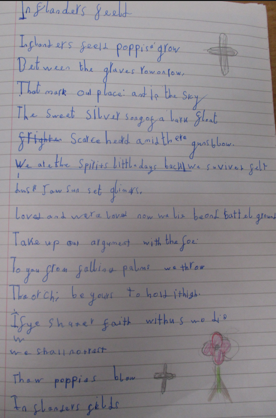 In flanders feeld
In flanders feeld poppie grow
Between the glaves rowonrow
That mark out place and in the Sky
The Sweet Silver song of a lark float
Scarce heard amidthere guns blow.
We are the Spiries little days back we survived felt
dusk saw sun set glows.
Loved and were loved now we lie beond battal ground
Take up our argument with the foe
To you from falling palms we throw
The orch; be yours to hold it high
If ye Shaner faith withus we die
we shall not rest
Thow poppies blow
In flanders feilds